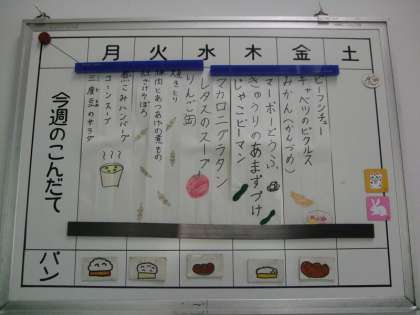 月 火 水 木 金 土
今週のこんだて
煮こみハンバーグ
コーンスープ
三度豆のサラダ
焼きとり
豚肉とあつあげの煮もの
りんご缶
レタスのスープ
マカロニグラタン
じゃこピーマン
きゅうりのあまずづけ
マーボーどうふ
みかん(かんづめ)
キャベツのピクルス
ビーフシチュー
パン